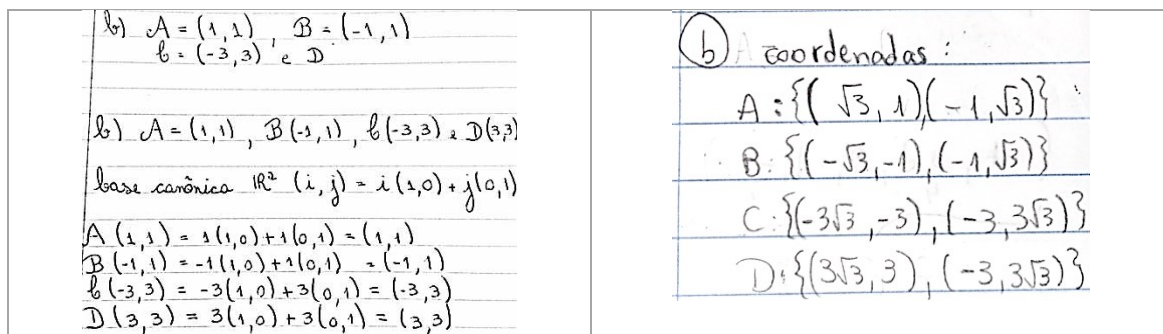 b) A = (1,1), B = (-1,1)
b = (-3,3) e D
b) A = (1,1), B(-1,1), b(-3,3) e D(3,3)
base canônica IR² (i,j) = i(1,0) + j(0,1)
A(1,1) = 1(1,0) + 1(0,1) = (1,1)
B(-1,1) = -1(1,0) + 1(0,1) = (-1,1)
b(-3,3) = -3(1,0) + 3(0,1) = (-3,3)
D(3,3) = 3(1,0) + 3(0,1) = (3,3)
b coordenadas:
A: {(√3, 1)(-1, √3)}
B: {(-√3, -1), (-1, √3)}
C: {(-3√3, -3), (-3, 3√3)}
D: {(3√3, 3), (-3, 3√3)}